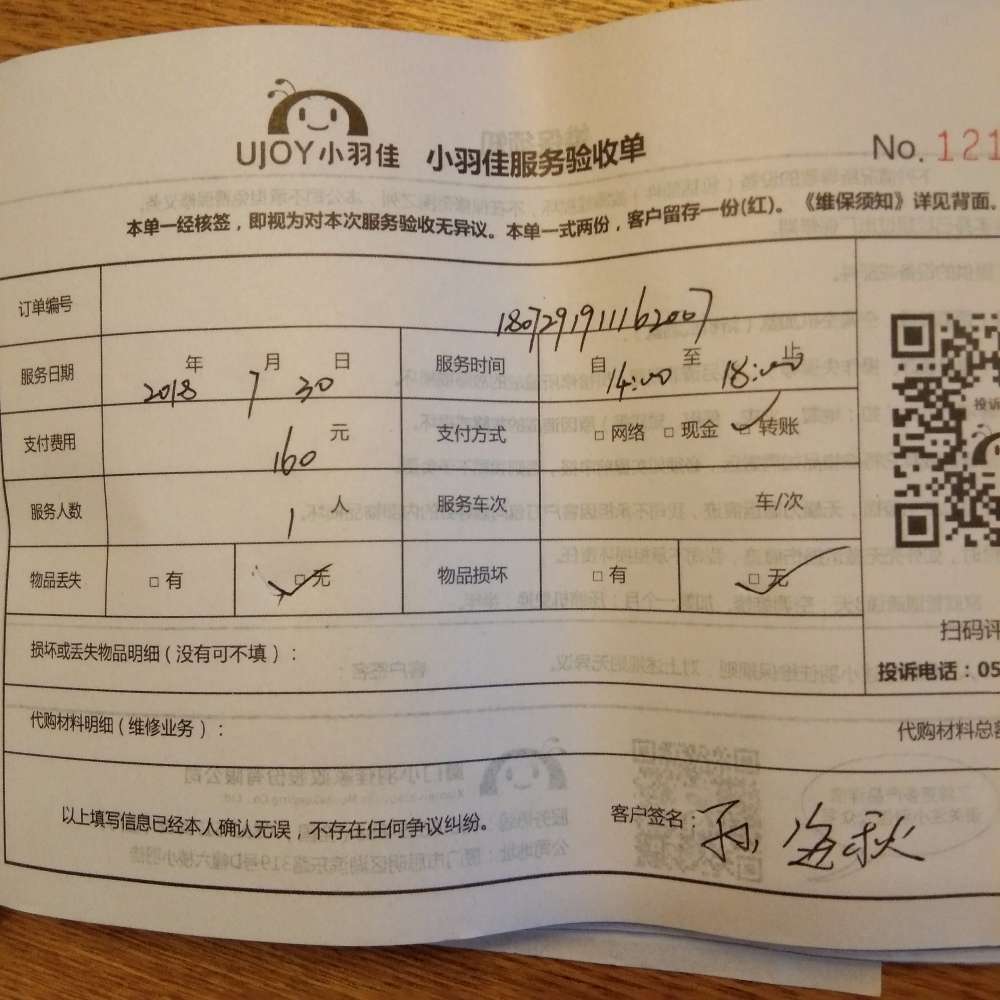 UJOY小羽佳 小羽佳服务验收单 No. 121
本单一经核签，即视为对本次服务验收无异议。本单一式两份，客户留存一份(红)。《维保须知》详见背面。
订单编号 1807291911162007
服务日期 2018年 7月 30日 服务时间 自14:00至 18:00止
支付费用 160元 支付方式 □网络 □现金 ✓□转账
服务人数 1人 服务车次 车/次
物品丢失 □有 ✓□无 物品损坏 □有 ✓□无
投诉
扫码评
损坏或丢失物品明细（没有可不填）：
投诉电话：05
代购材料明细（维修业务）： 代购材料总
以上填写信息已经本人确认无误，不存在任何争议纠纷。 客户签名：孙海秋